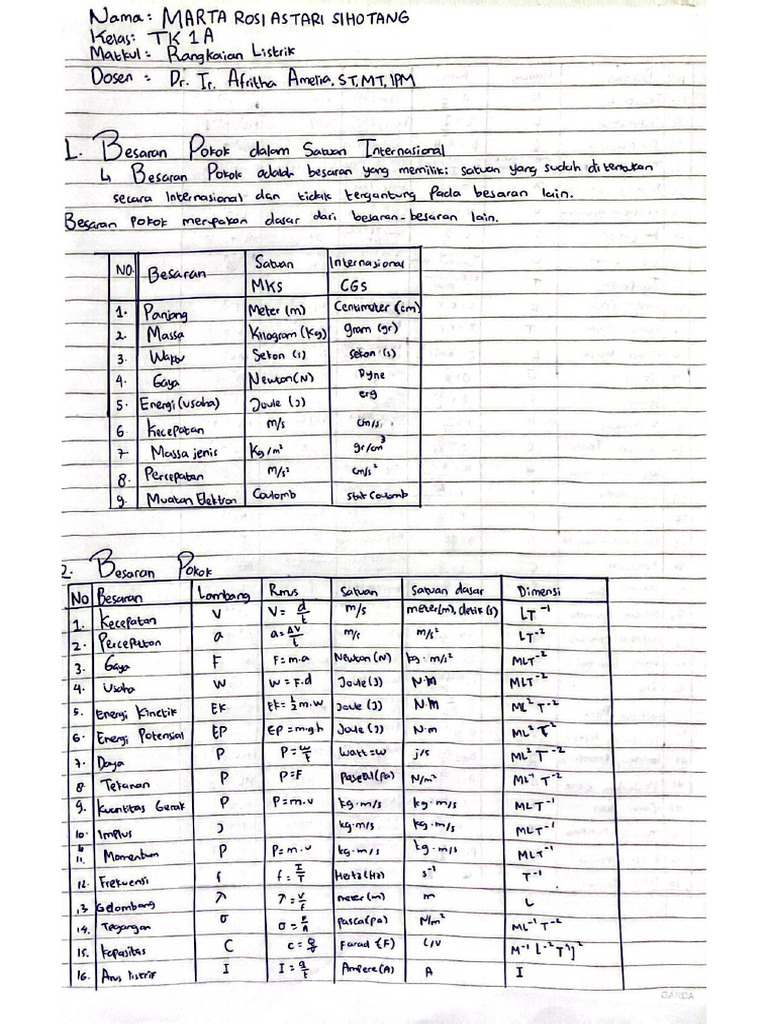 Nama: MARTA ROSI ASTARI SIHOTANG
Kelas: TK 1A
Matkul: Rangkaian Listrik
Dosen: Dr. Ir. Afritha Amelia, ST, MT, IPM
1. Besaran Pokok dalam Satuan Internasional
↳ Besaran Pokok adalah besaran yang memiliki satuan yang sudah ditentukan
secara Internasional dan tidak tergantung Pada besaran lain.
Besaran pokok merupakan dasar dari besaran-besaran lain.
NO. Besaran Satuan Internasional
MKS CGS
1. Panjang Meter (m) Centimeter (cm)
2. Massa Kilogram (Kg) gram (gr)
3. Waktu Sekon (s) sekon (s)
4. Gaya Newton (N) Dyne
5. Energi (usaha) Joule (J) erg
6. Kecepatan m/s cm/s
7. Massa jenis Kg/m² gr/cm³
8. Percepatan m/s² cm/s²
9. Muatan Elektron Coulomb stat Coulomb
2. Besaran Pokok
No Besaran Lambang Rmus Satuan Satuan dasar Dimensi
1. Kecepatan V V = d/t m/s meter(m), detik(s) LT⁻¹
2. Percepatan a a = ΔV/t m/s m/s² LT⁻²
3. Gaya F F = m.a Newton (N) kg·m/s² MLT⁻²
4. Usaha W W = F.d Joule (J) N·m MLT⁻²
5. Energi Kinetik EK Ek = ½ m.w Joule (J) N·m ML² T⁻²
6. Energi Potensial EP EP = m·g·h Joule (J) N·m ML² T⁻²
7. Daya P P = w/t Watt = W j/s ML² T⁻²
8. Tekanan P P = F Pascal (Pa) N/m² ML⁻¹ T⁻²
9. Kuantitas Gerak P P = m.v kg·m/s kg·m/s MLT⁻¹
10. Implus J kg·m/s kg·m/s MLT⁻¹
11. Momentum P P = m.v kg·m/s kg·m/s MLT⁻¹
12. Frekuensi f Hertz (Hz) s⁻¹ T⁻¹
13 Gelombang λ λ = v/f meter (m) m L
14. Tegangan σ σ = F/A pasca (pa) N/m² ML⁻¹ T⁻²
15. Kapasitas C Farad (F)
16. Arus listrik I I = q/t Ampere (A) A I
GARDA